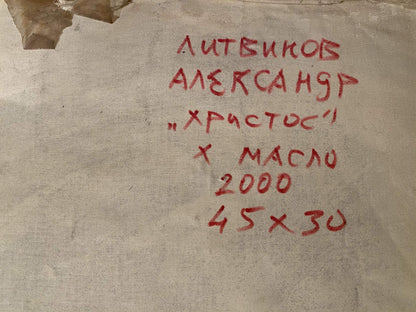 ЛИТВИНОВ
АЛЕКСАНДР
„ХРИСТОС"
Х МАСЛО
2000
45 х 30